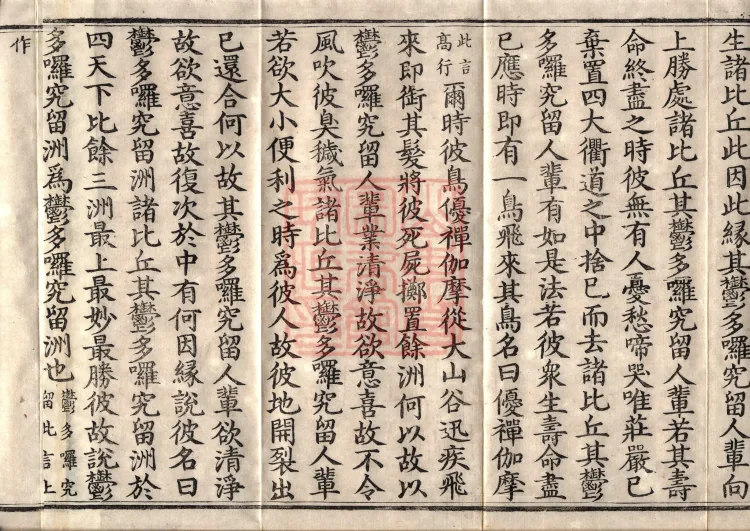 生諸比丘此因此緣其鬱多囉究留人輩向
上勝處諸比丘其鬱多囉究留人輩若其壽
命終盡之時彼無有人憂愁啼哭唯莊嚴已
棄置四大衢道之中捨已而去諸比丘其鬱
多囉究留人輩有如是法若彼衆生壽命盡
已應時即有一鳥飛來其鳥名曰優禪伽摩
此言
高行
爾時彼鳥優禪伽摩從大山谷迅疾飛
來即銜其髮將彼死屍擲置餘洲何以故以
鬱多囉究留人輩業清淨故欲意喜故不令
風吹彼臭穢氣諸比丘其鬱多囉究留人輩
若欲大小便利之時爲彼人故彼地開裂出
已還合何以故其鬱多囉究留人輩欲清淨
故欲意喜故復次於中有何因緣說彼名曰
鬱多囉究留洲諸比丘其鬱多囉究留洲於
四天下比餘三洲最上最妙最勝彼故說鬱
多囉究留洲爲鬱多囉究留洲也
鬱多囉究
留此言上
作